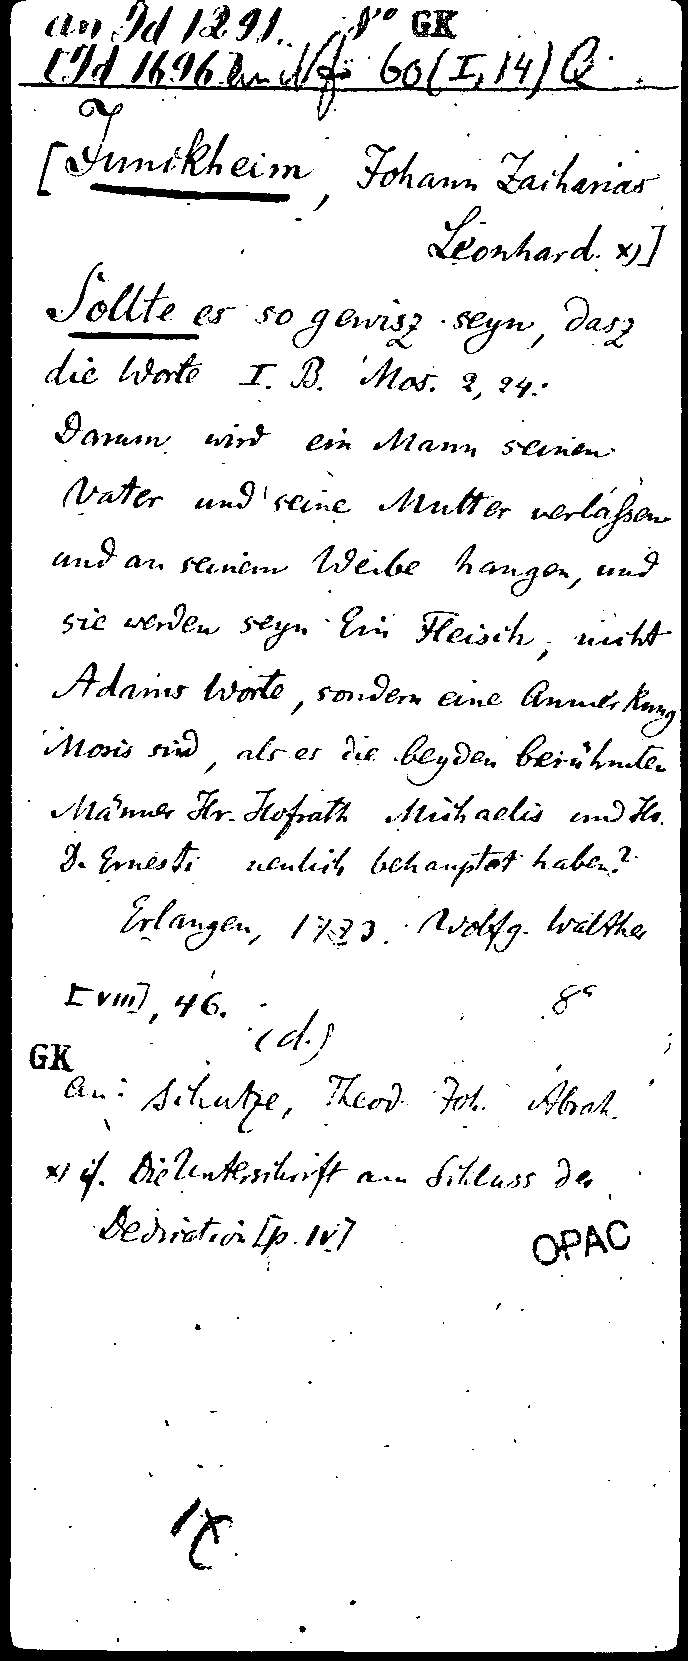 an Id 1291. 8º GK
Id 1696 60 (I, 14) Q
[Junckheim, Johann Zacharias
Leonhard. x)]
Sollte es so gewisz seyn, dasz
die Worte I. B. Mos. 2, 24:
Darum wird ein Mann seinen
Vater und seine Mutter verlassen
und an seinem Weibe hangen, und
sie werden seyn Ein Fleisch, nicht
Adams Worte, sondern eine Anmerkung
Mosis sind, als es die beyden berühmten
Männer Hr. Hofrath Michaelis und Hr.
D. Ernesti neulich behauptet haben?
Erlangen, 1773. Wolfg. Walther
[VIII], 46. 8º
(d.)
GK
an: Schutze, Theod. Joh. Abrah.
x) cf. Die Unterschrift am Schluss der
Dedication [p. IV]
OPAC